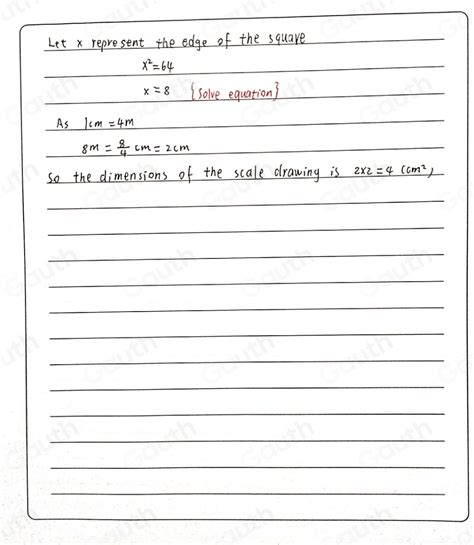 Let x represent the edge of the square
x²=64
x=8 {Solve equation}
As 1cm=4m
8m=8/4 cm=2cm
So the dimensions of the scale drawing is 2x2=4 (cm²)
Gauth